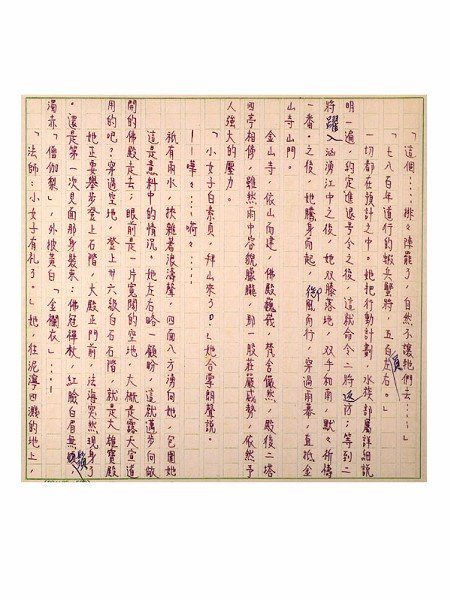 「這個……排々陣罷了，自然不讓牠們去……」
「七八百年道行的蝦兵蟹將，頁雙手左右。」
一切都在設計之中。她把行動計劃，水族部屬詳細說
明一遍，約定進退号令之後，這就命令二將返防；等到二
將躍入洶湧江中之後，她双膝落地，双手和南，默々祈禱
一番。之後，她騰身而起，御風而行，穿過雨暴，直抵金
山寺山門。
金山寺，依山而建，佛殿巍峩，梵舍儼然，殿後二塔
四亭相倚，雖然雨中容貌朦朧，那一股莊嚴威勢，依然予
人強大的壓力。
「小女子白素貞，拜山來了。」她合掌朗聲說。
——嘩々……啊々……
祇有雨水，挾雜着浪濤聲，四面八方湧向她，包圍她
這是意料中的情況。她左右略一顧盼，這就邁步向敞
開的佛殿走去；眼前是一片寬闊的空地，大概是露天宣道
用的吧？穿過空地，登上廿六級白石石階，就是大雄寶殿
她正要舉步登上石階。大殿正門前，法海突然現身了
。還是第一次見面那身裝束：佛冠禪杖，紅臉白眉無鬚
濁赤「僧伽梨」，外披黃白「金襴衣」……
「法師：小女子有礼了。」她，往泥濘四濺的地上，